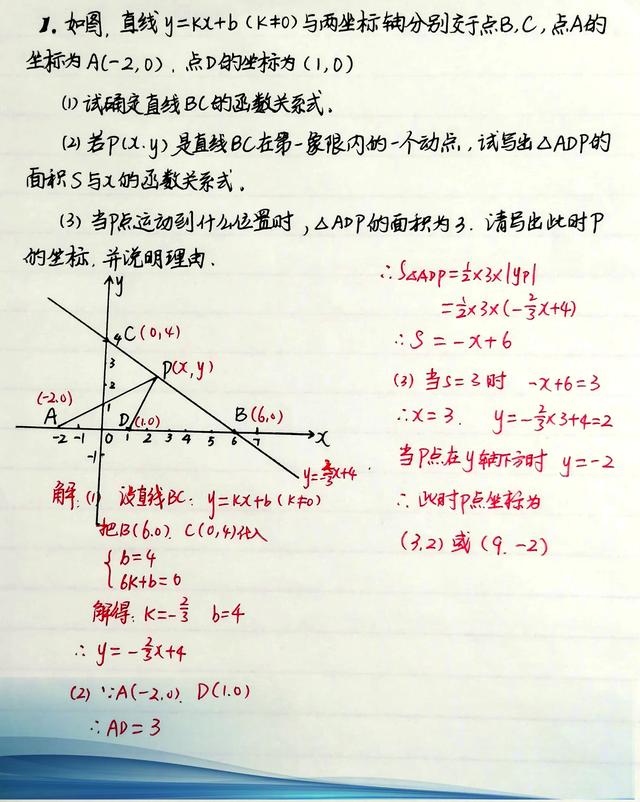 1. 如图, 直线 y=kx+b (k≠0)与两坐标轴分别交于点B,C,点A的
坐标为A(-2,0), 点D的坐标为(1,0)
(1) 试确定直线BC的函数关系式.
(2) 若P(x.y)是直线BC在第一象限内的一个动点,试写出△ADP的
面积S与x的函数关系式.
(3) 当P点运动到什么位置时,△ADP的面积为3. 请写出此时P
的坐标,并说明理由.
y
4 C(0,4)
3
P(x,y)
2
(-2.0)
1
A
D (1.0)
B(6,0)
-2 -1 0 1 2 3 4 5 6 7 x
-1
y=-2/3x+4
解:(1) 设直线BC: y=kx+b (k≠0)
把B(6.0). C(0,4)代入
{ b=4
6k+b=0
解得: k=-2/3 b=4
∴ y=-2/3x+4
(2) ∵A(-2,0). D(1.0)
∴AD=3
∴S△ADP=1/2×3×|yP|
=1/2×3×(-2/3x+4)
∴S=-x+6
(3) 当S=3时 -x+6=3
∴x=3. y=-2/3×3+4=2
当P点在y轴下方时 y=-2
∴此时P点坐标为
(3,2) 或 (9.-2)